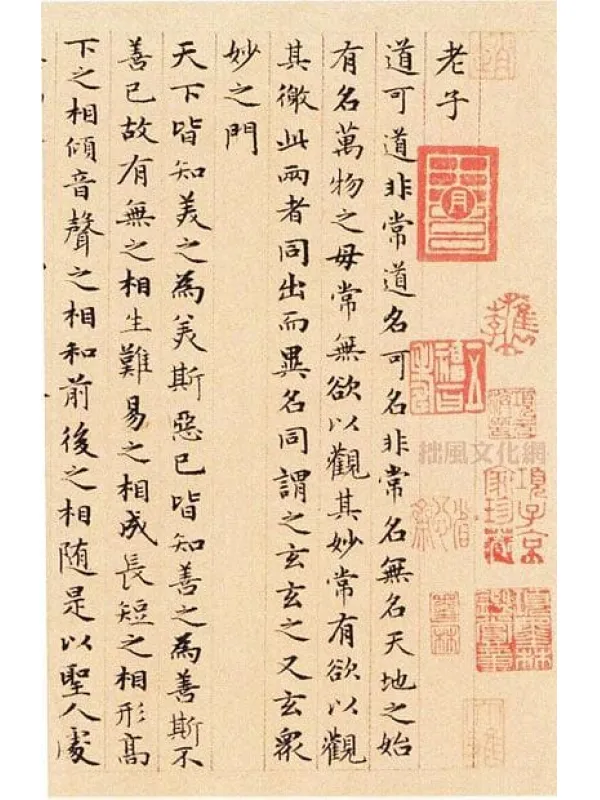 項子京
家珍藏
拙風文化網
老子
道可道非常道名可名非常名無名天地之始
有名萬物之母常無欲以觀其妙常有欲以觀
其徼此兩者同出而異名同謂之玄玄之又玄眾
妙之門
天下皆知美之為美斯惡已皆知善之為善斯不
善已故有無之相生難易之相成長短之相形高
下之相傾音聲之相和前後之相随是以聖人處